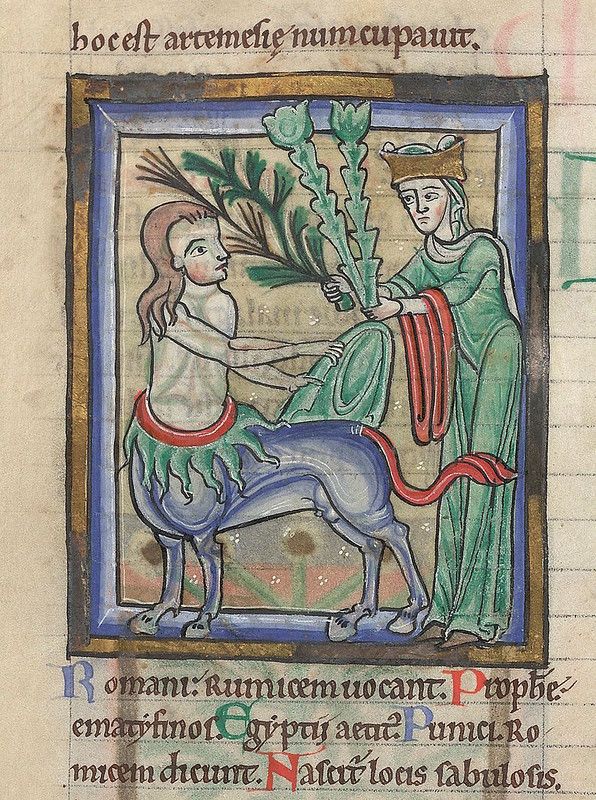 hoc est artemesię numcupauit.
Romani: Rumicem uocant. Prophe-
ematyfinos. Egyptii aetit. Punici. Ro
micem dicunt. Nascit locis sabulosis.